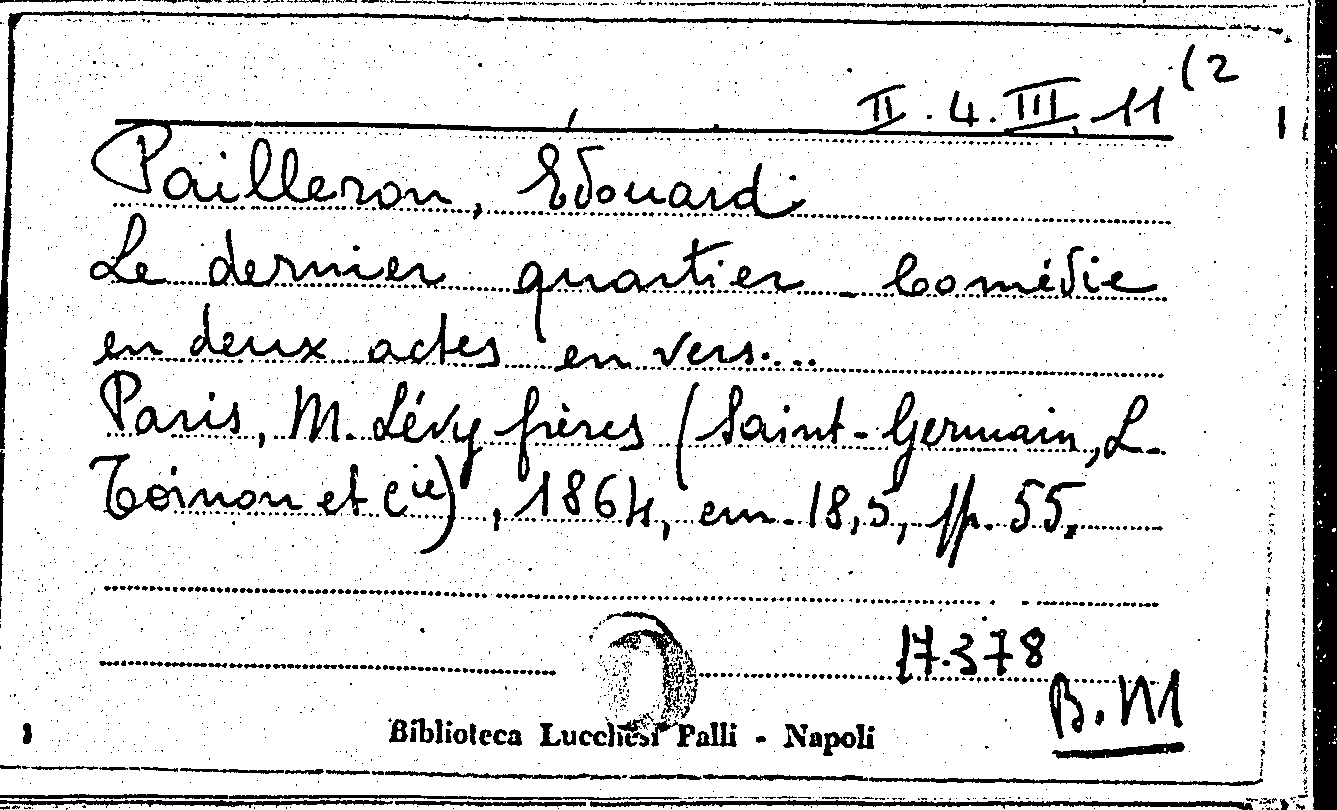 II.4.III.11(2
Pailleron, Edouard
Le dernier quartier - Comédie
en deux actes en vers....
Paris, M. Lévy frères (Saint-Germain, L.
Toinon et Cie), 1864, cm. 18,5, pp. 55.
17.378
B.M
Biblioteca Lucchesi Palli - Napoli